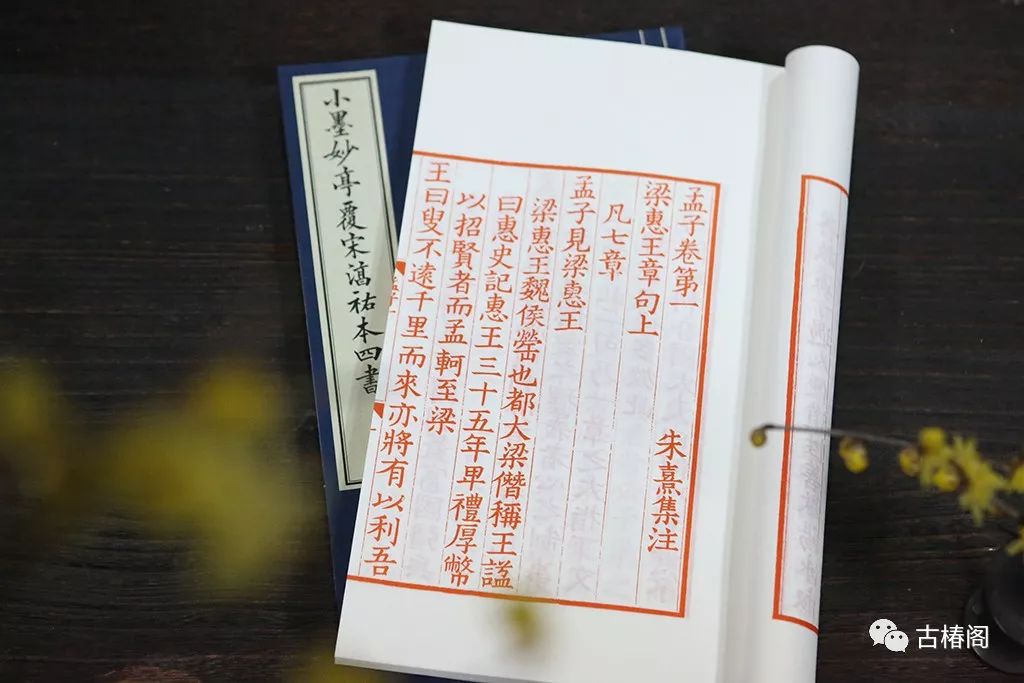 小墨妙亭覆宋淳祐本四書
孟子卷第一
梁惠王章句上 朱熹集注
凡七章
孟子見梁惠王
梁惠王魏侯罃也都大梁僭稱王謚
曰惠史記惠王三十五年卑禮厚幣
以招賢者而孟軻至梁
王曰叟不遠千里而來亦將有以利吾
古椿阁